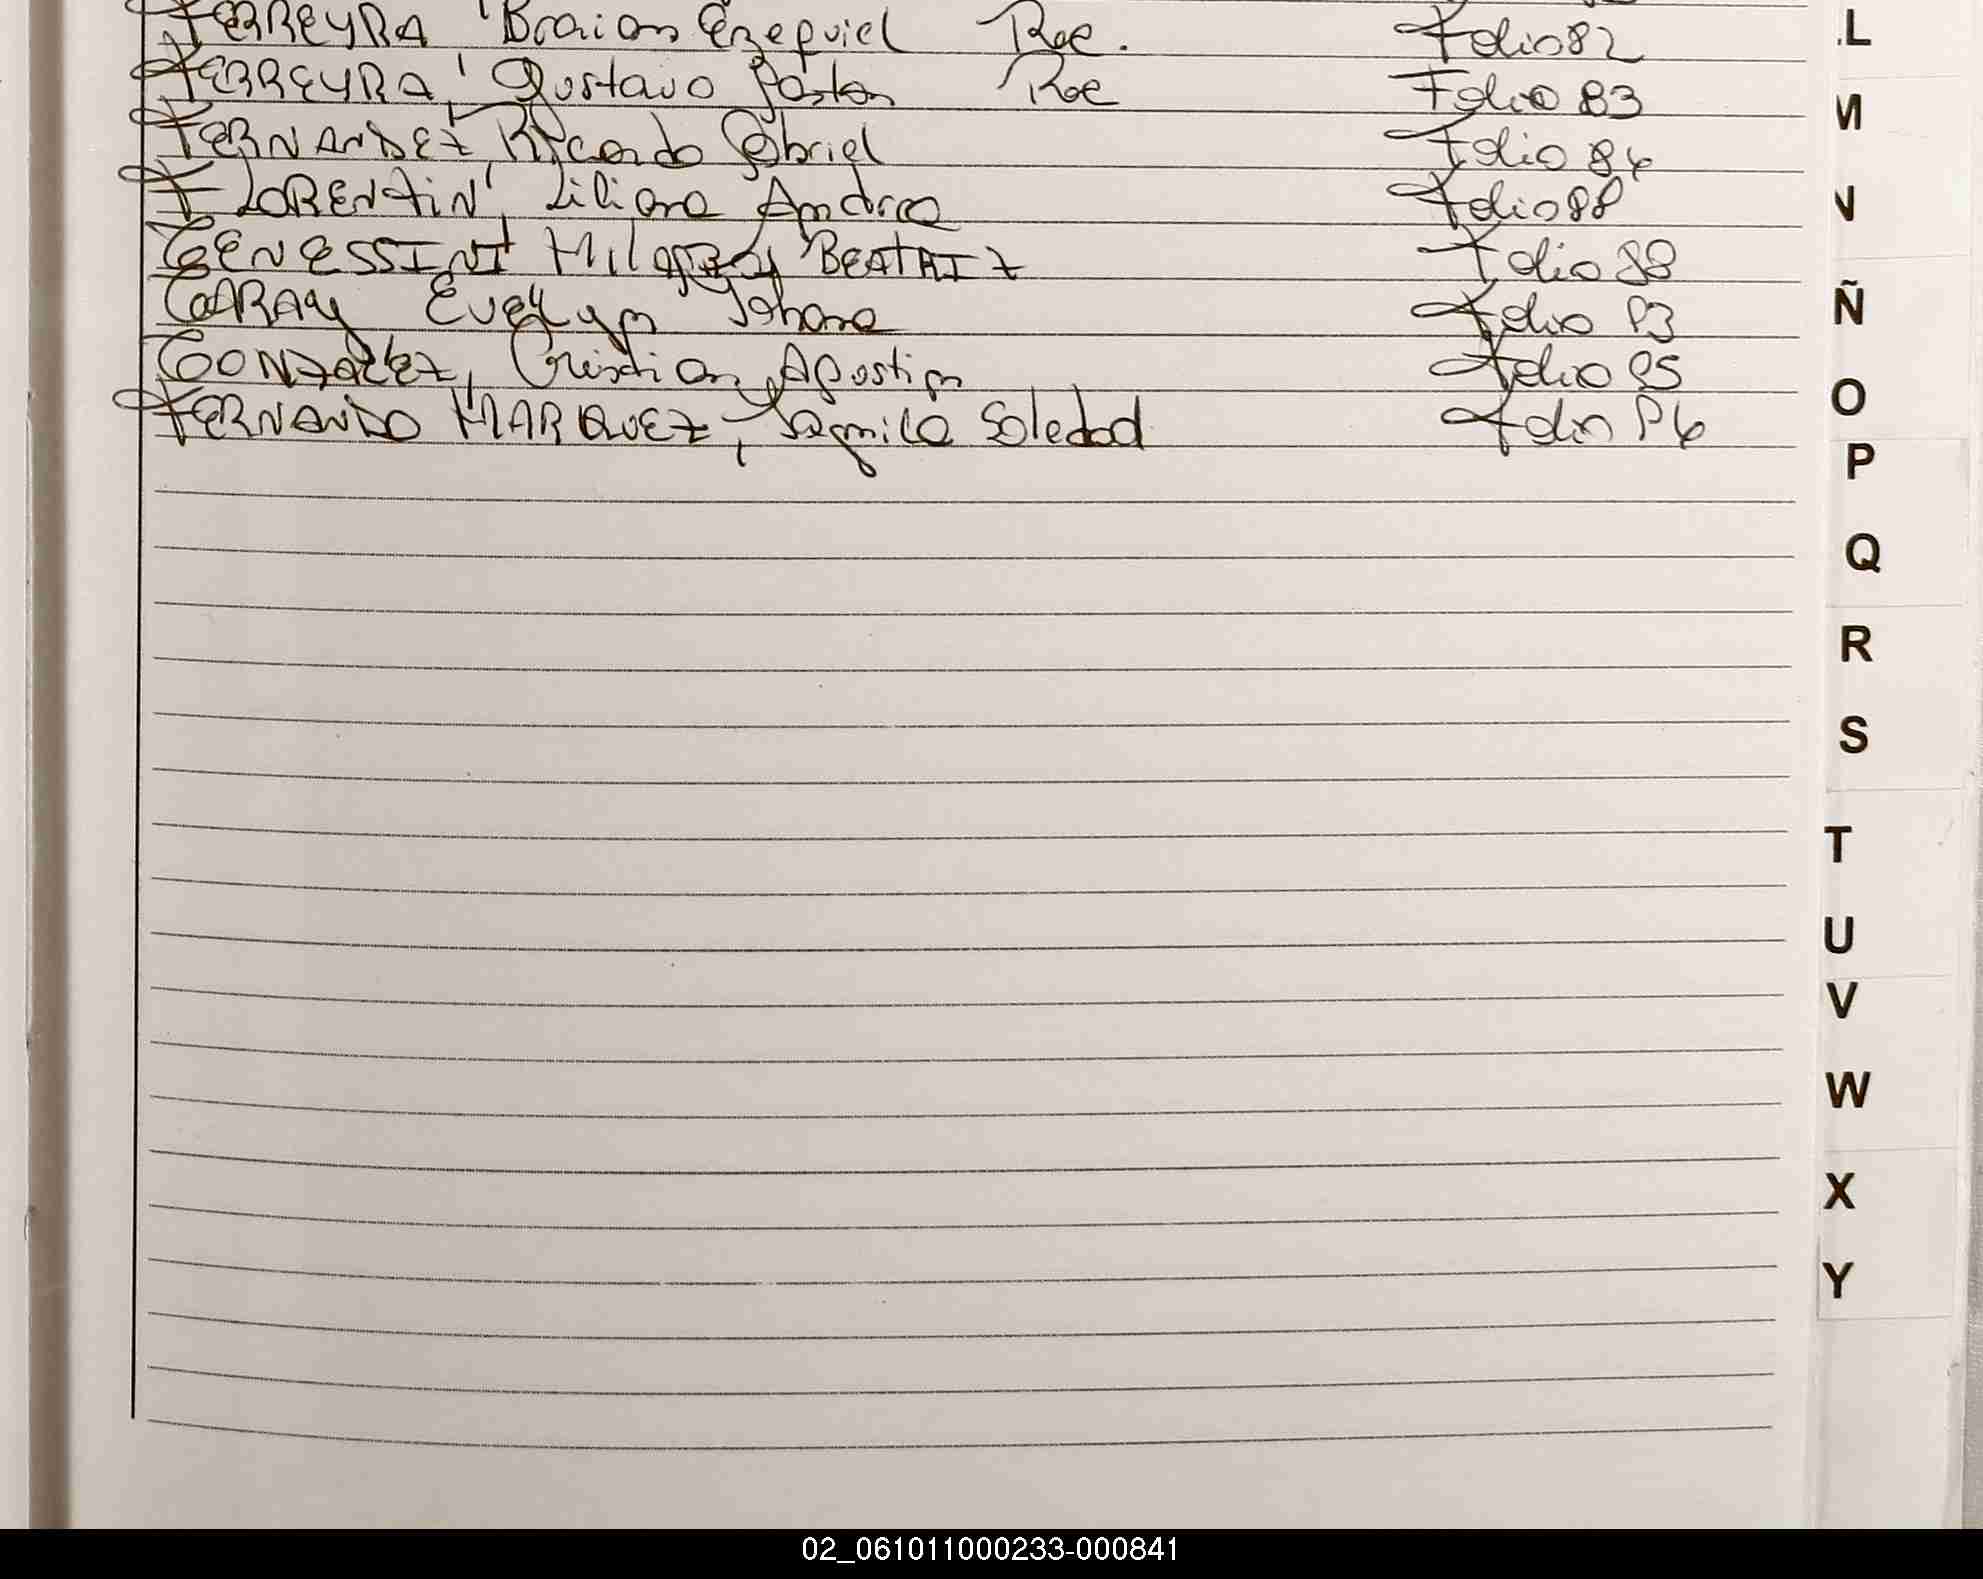 FERREYRA Braian Ezequiel Rec. Folio 82
FERREYRA, Gustavo Gastón Rec Folio 83
FERNANDEZ, Ricardo Gabriel Folio 84
FLORENTIN, Liliana Andrea Folio 88
GENESSINI Milagros BEATRIZ Folio 88
GARAY Evelyn Johana Folio 93
GONZALEZ, Cristian Agostin Folio 95
FERNANDO MARQUEZ, Yamila Soledad Folio 96
L
M
N
Ñ
O
P
Q
R
S
T
U
V
W
X
Y
02_061011000233-000841